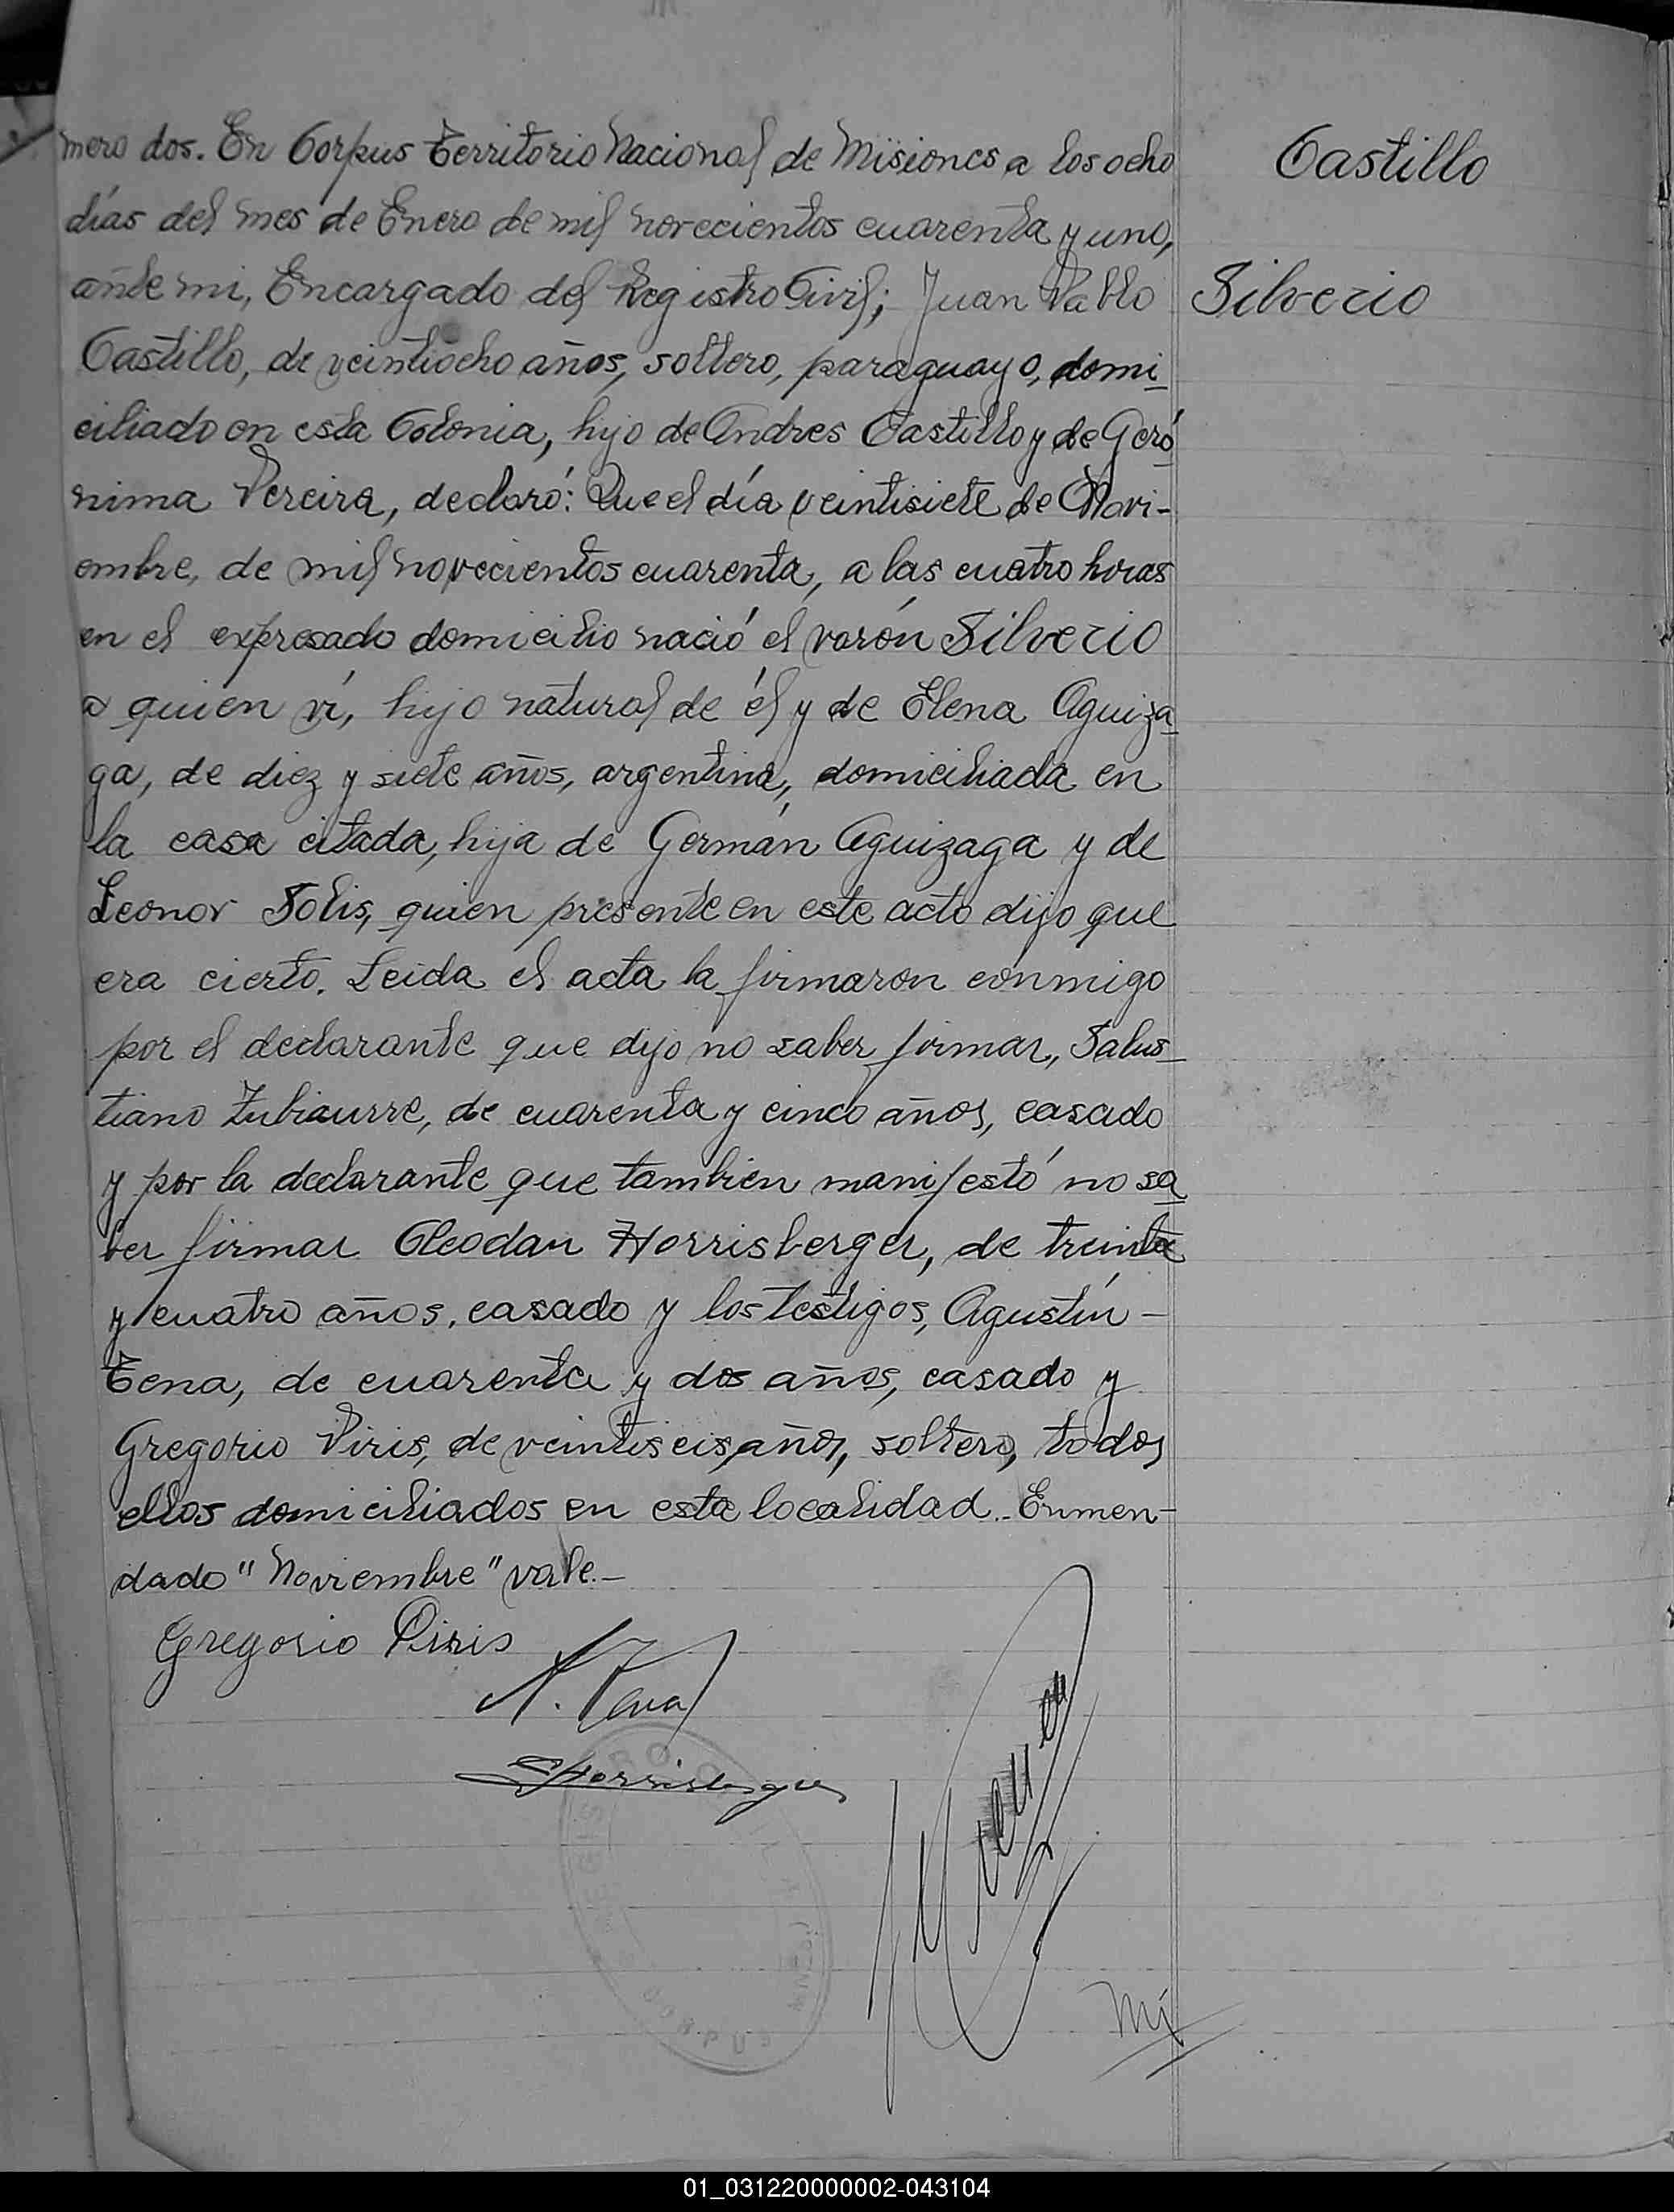 mero dos. En Corpus Territorio Nacional de Misiones a los ocho
Castillo
días del mes de Enero de mil novecientos cuarenta y uno,
ante mi, Encargado del Registro Civil; Juan Pablo
Silverio
Castillo, de veintiocho años, soltero, paraguayo, domi
ciliado en esta Colonia, hijo de Andres Castillo y de Geró
nima Pereira, declaró: Que el día veintisiete de Novi-
embre, de mil novecientos cuarenta, a las cuatro horas
en el expresado domicilio nació el varón Silverio
a quien ví, hijo natural de él y de Elena Aguiza
ga, de diez y siete años, argentina, domiciliada en
la casa citada, hija de Germán Aguizaga y de
Leonor Solis, quien presente en este acto dijo que
era cierto. Leida el acta la firmaron conmigo
por el declarante que dijo no saber firmar, Salus
tiano Zubiaurre, de cuarenta y cinco años, casado
y por la declarante que tambien manifestó no sa
ber firmar Cleodan Horrisberger, de treinta
y cuatro años, casado y los testigos, Agustín -
Tena, de cuarenta y dos años, casado y
Gregorio Piris, de veintiseis años, soltero, todos
ellos domiciliados en esta localidad.- Enmen-
dado "Noviembre" vale.-
Gregorio Piris
A. Tena
Horrisberger
01_031220000002-043104